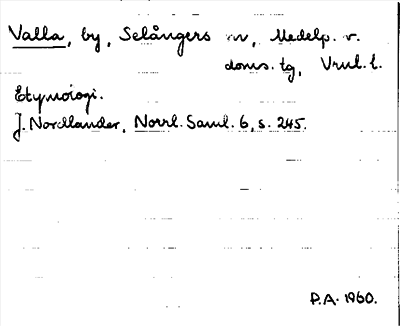 Valla, by, Selångers sn, Medelp. v.
doms. tg, Vrnl. l.
Etymologi.
J. Nordlander, Norrl. Saml. 6, s. 245.
P.A. 1960.